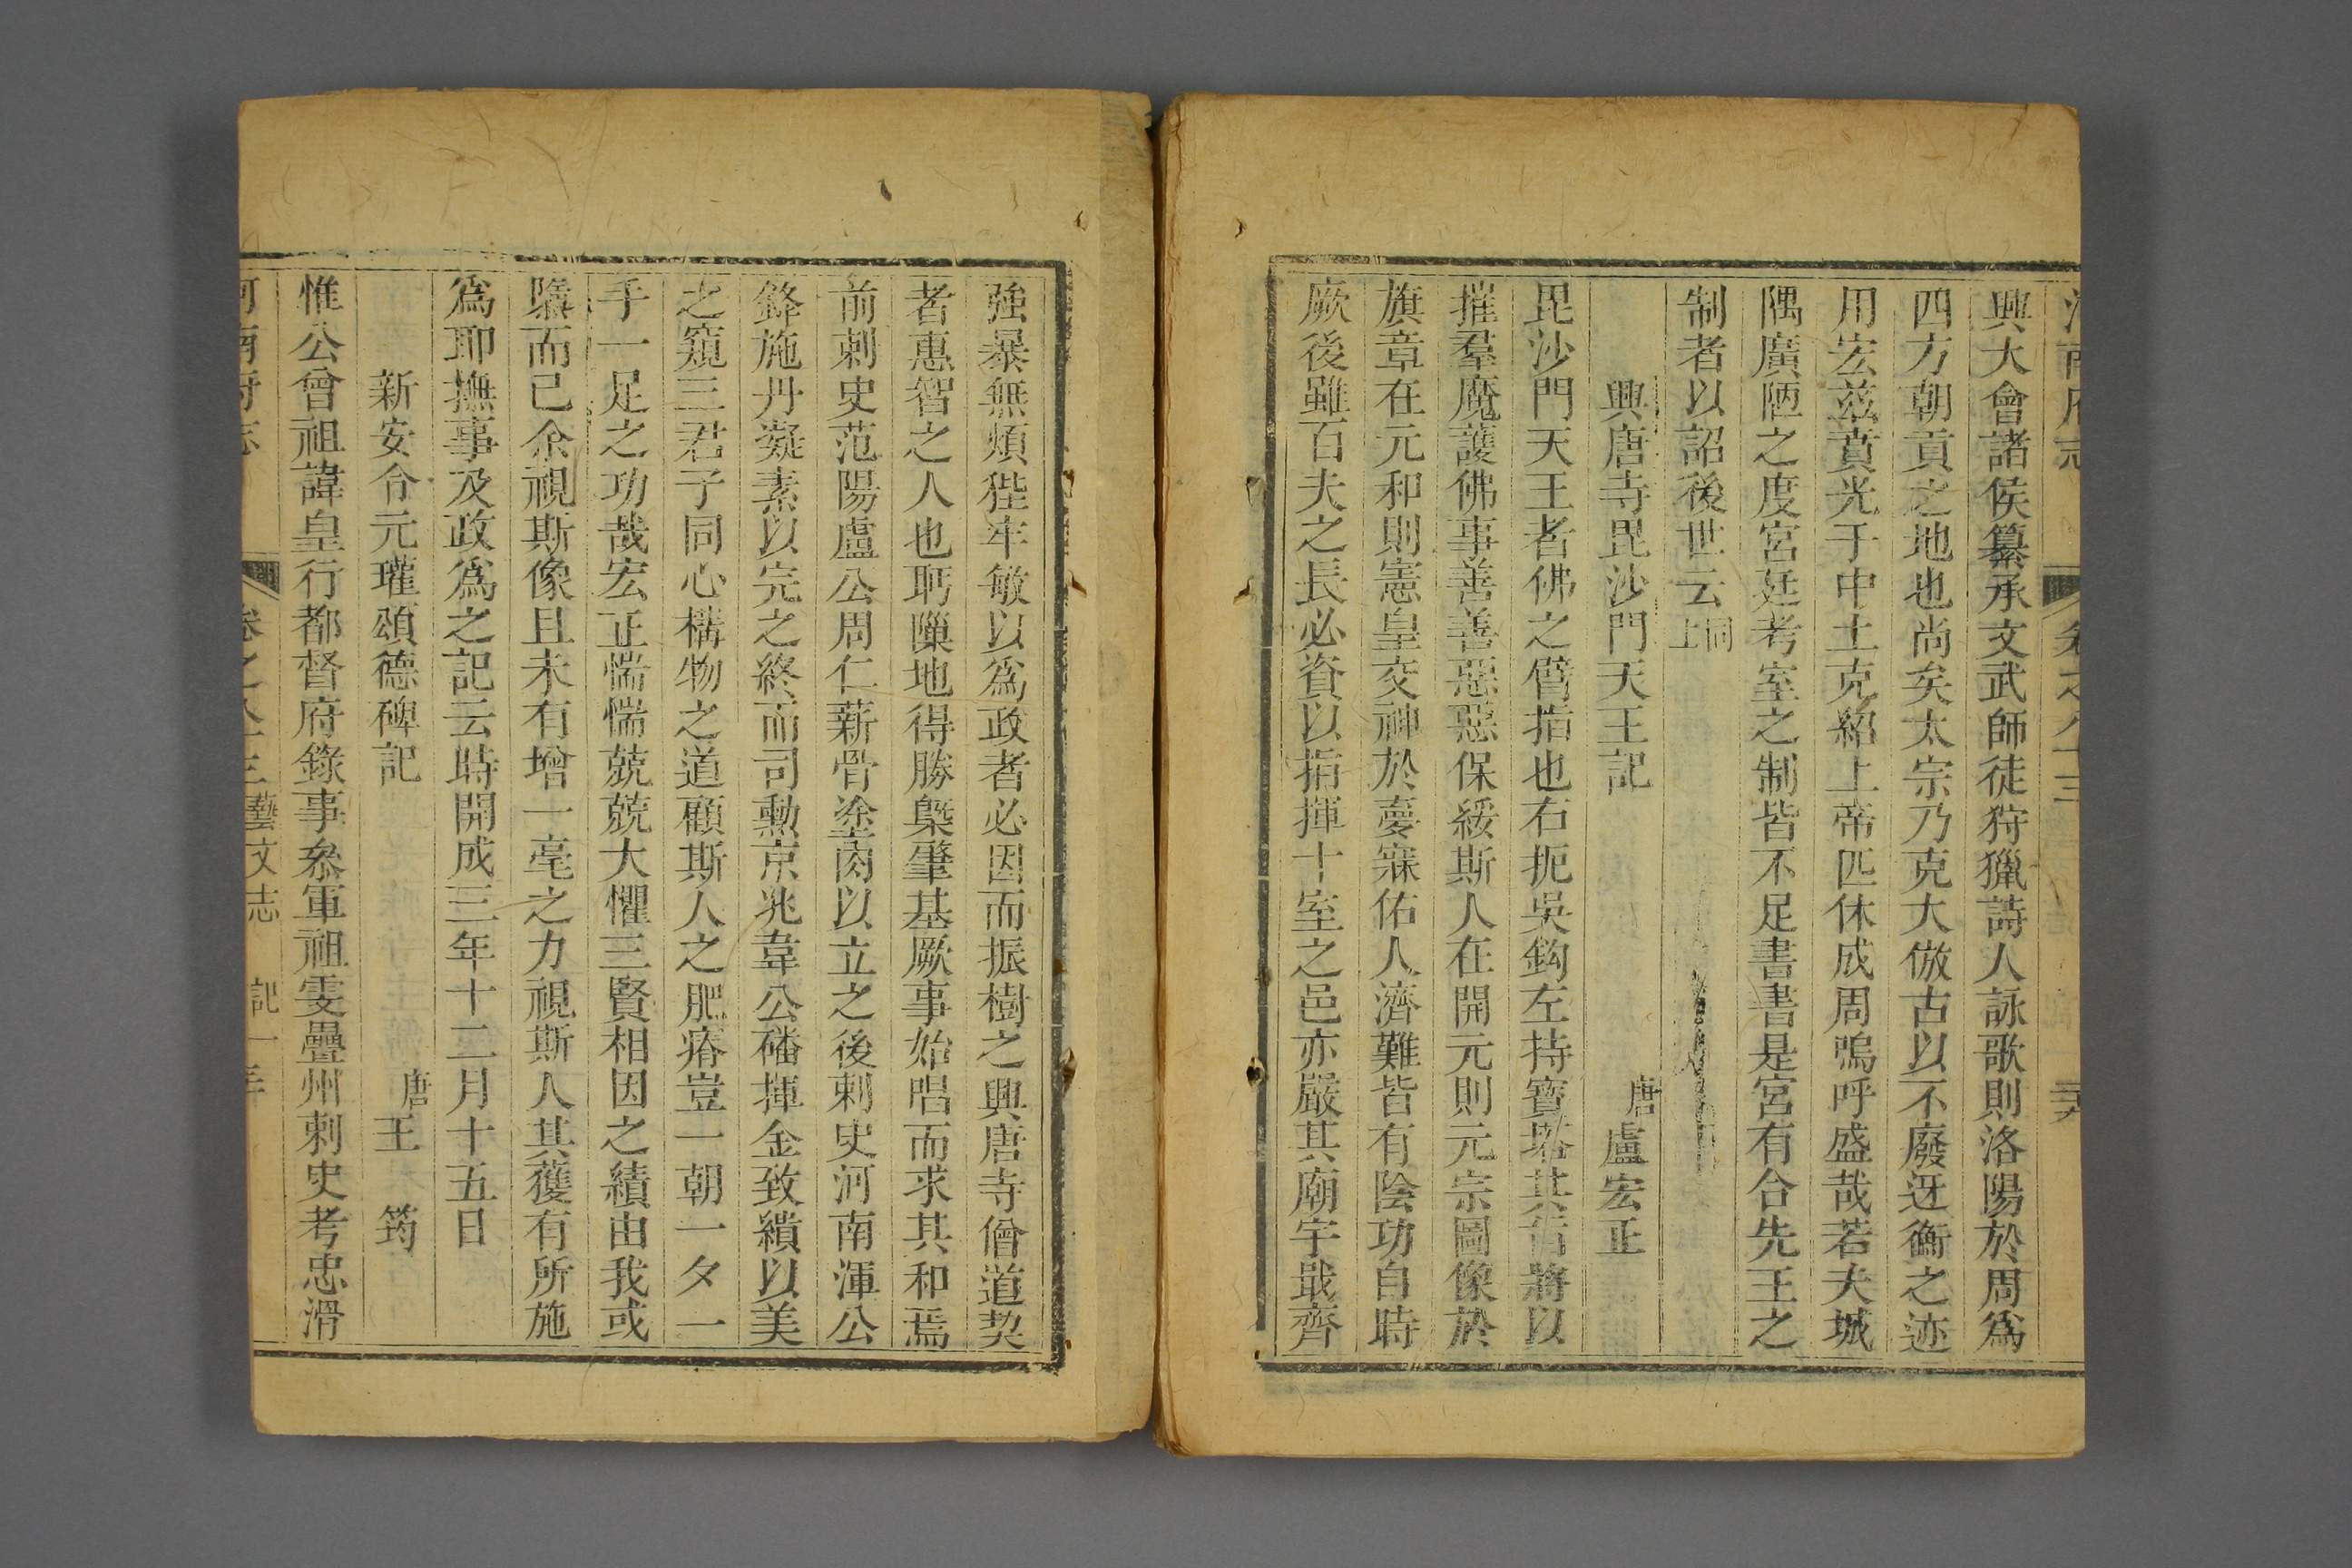 河南府志 卷之八十三 三六
興大會諸侯纂承文武師徒狩獵詩人詠歌則洛陽於周爲
四方朝貢之地也尚矣太宗乃克大倣古以不廢迓衡之迹
用宏茲賁光于中土克紹上帝匹休成周嗚呼盛哉若夫城
隅廣陋之度宮廷考室之制皆不足書書是宮有合先王之
制者以詔後世云同上
興唐寺毘沙門天王記 唐盧宏正
毘沙門天王者佛之臂指也右扼吳鈎左持寶塔其旨將以
摧羣魔護佛事善善惡惡保綏斯人在開元則元宗圖像於
旗章在元和則憲皇交神於夢寐佑人濟難皆有陰功自時
厥後雖百夫之長必資以指揮十室之邑亦嚴其廟宇戢齊
強暴無煩狴牢敏以爲政者必因而振樹之興唐寺僧道契
者惠智之人也眄隟地得勝槩肇基厥事始唱而求其和焉
前刺史范陽盧公周仁薪骨塗肉以立之後刺史河南渾公
鋒施丹凝素以完之終而司勳京兆韋公磻揮金致繢以美
之窺三君子同心構物之道顧斯人之肥瘠豈一朝一夕一
手一足之功哉宏正惴惴兢兢大懼三賢相因之績由我或
隳而已余視斯像且未有增一毫之力視斯人其獲有所施
爲耶撫事及政爲之記云時開成三年十二月十五日
新安令元瓘頌德碑記 唐王 筠
惟公曾祖諱皇行都督府錄事叅軍祖雯疊州刺史考忠滑
河南府志 卷之八十三藝文志 記一